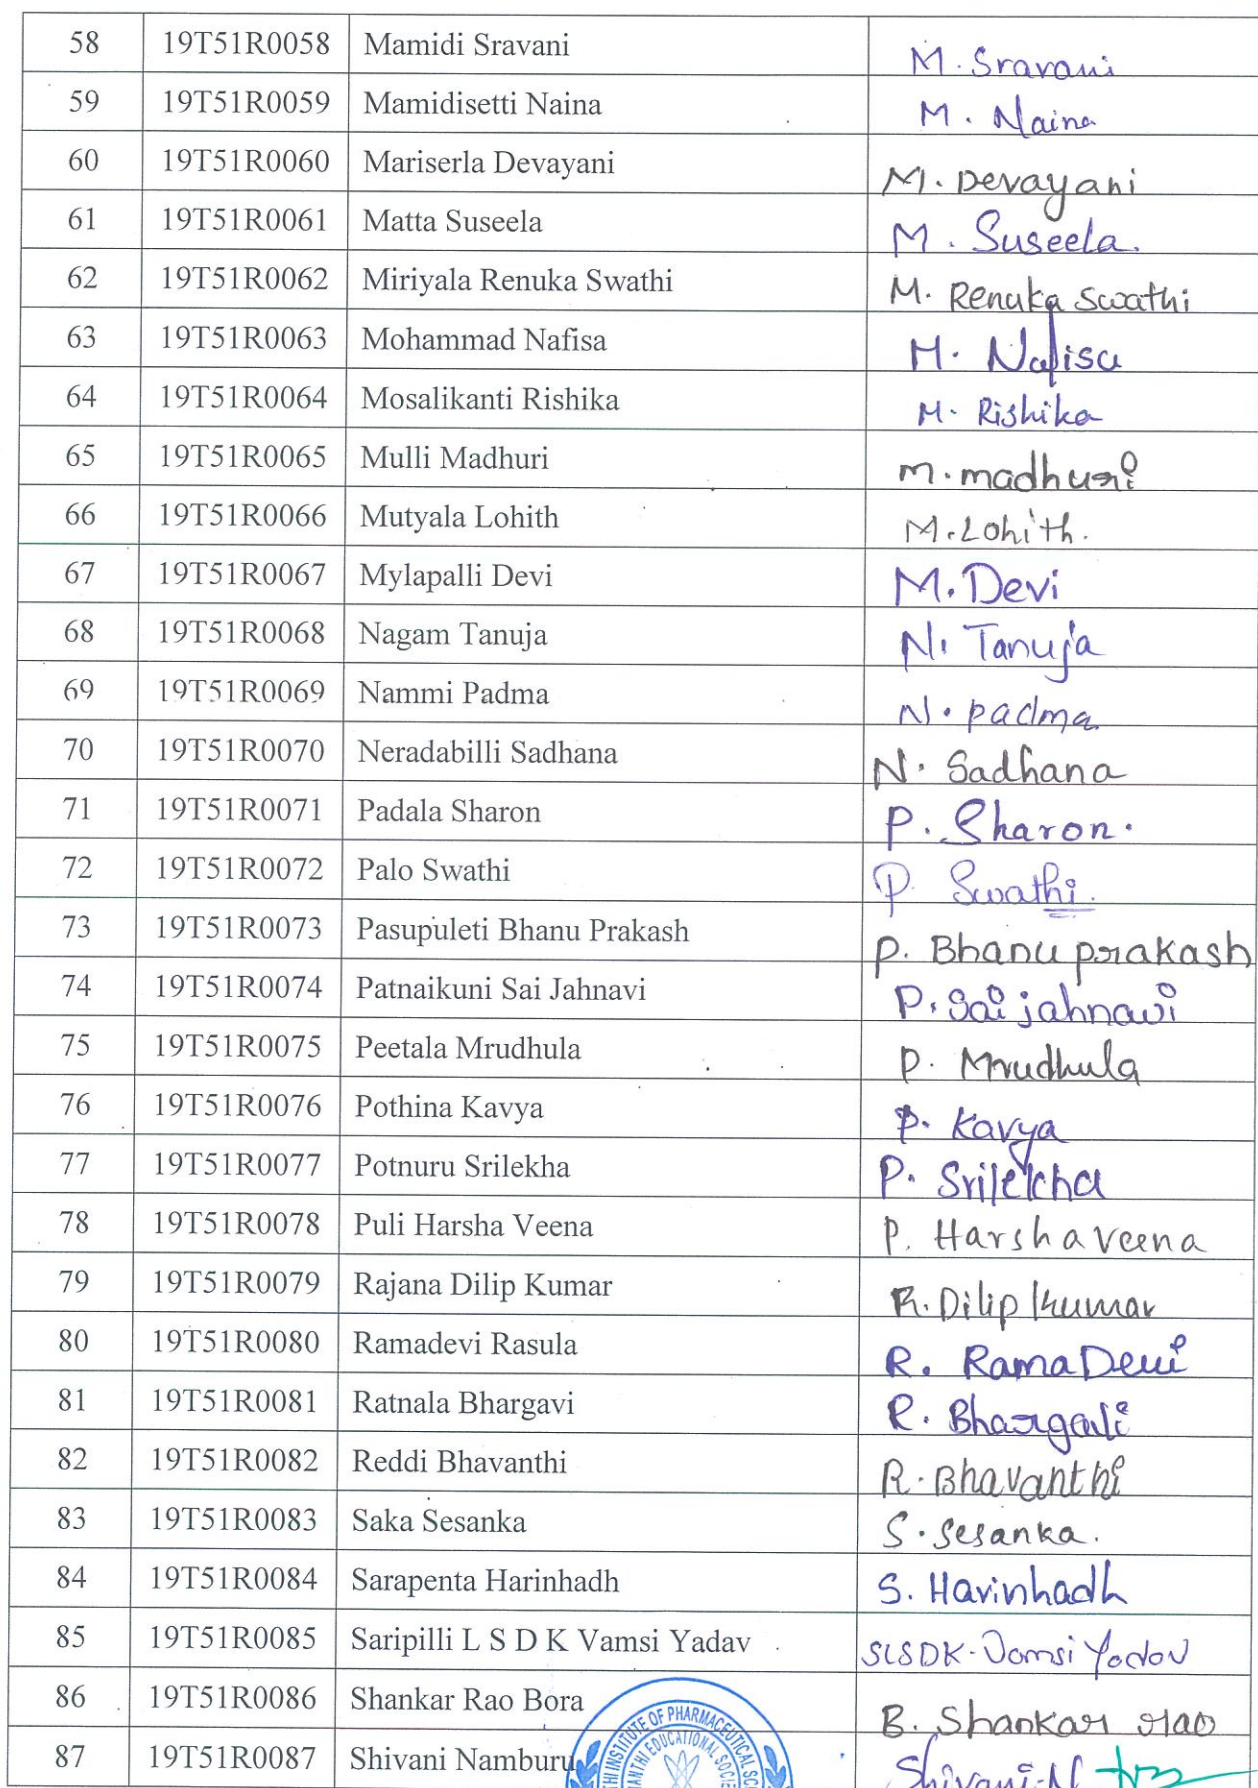 58 19T51R0058 Mamidi Sravani M. Sravani
59 19T51R0059 Mamidisetti Naina M. Naina
60 19T51R0060 Mariserla Devayani M. Devayani
61 19T51R0061 Matta Suseela M. Suseela.
62 19T51R0062 Miriyala Renuka Swathi M. Renuka Swathi
63 19T51R0063 Mohammad Nafisa M. Nafisa
64 19T51R0064 Mosalikanti Rishika M. Rishika
65 19T51R0065 Mulli Madhuri M. madhuri
66 19T51R0066 Mutyala Lohith M. Lohith.
67 19T51R0067 Mylapalli Devi M. Devi
68 19T51R0068 Nagam Tanuja N. Tanuja
69 19T51R0069 Nammi Padma N. padma
70 19T51R0070 Neradabilli Sadhana N. Sadhana
71 19T51R0071 Padala Sharon P. Sharon.
72 19T51R0072 Palo Swathi P. Swathi.
73 19T51R0073 Pasupuleti Bhanu Prakash P. Bhanu prakash
74 19T51R0074 Patnaikuni Sai Jahnavi P. Sai jahnavi
75 19T51R0075 Peetala Mrudhula P. Mrudhula
76 19T51R0076 Pothina Kavya P. Kavya
77 19T51R0077 Potnuru Srilekha P. Srilekha
78 19T51R0078 Puli Harsha Veena P. Harsha veena
79 19T51R0079 Rajana Dilip Kumar R. Dilip kumar
80 19T51R0080 Ramadevi Rasula R. Rama Devi
81 19T51R0081 Ratnala Bhargavi R. Bhargavi
82 19T51R0082 Reddi Bhavanthi R. Bhavanthi
83 19T51R0083 Saka Sesanka S. Sesanka.
84 19T51R0084 Sarapenta Harinhadh S. Harinhadh
85 19T51R0085 Saripilli L S D K Vamsi Yadav SLSDK. Vamsi Yadav
86 19T51R0086 Shankar Rao Bora B. Shankar rao
87 19T51R0087 Shivani Namburu Shivani.N
INSTITUTE OF PHARMACEUTICAL
EDUCATIONAL